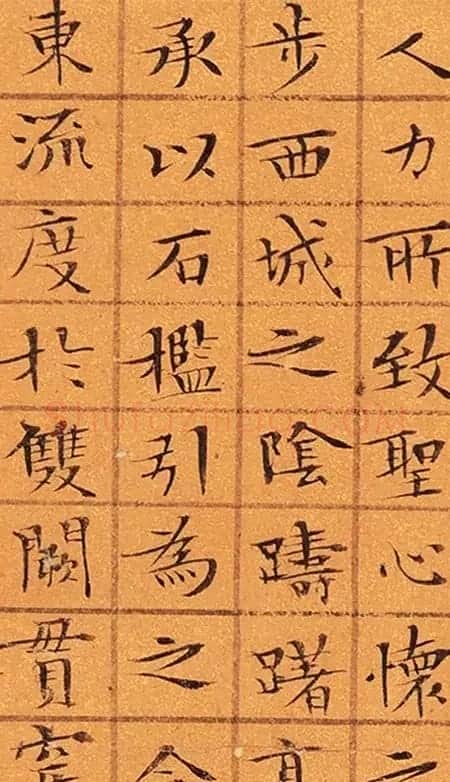 人力所致聖心懷之
步西城之陰躊躇高
承以石檻引為之
東流度於雙闕貫穿